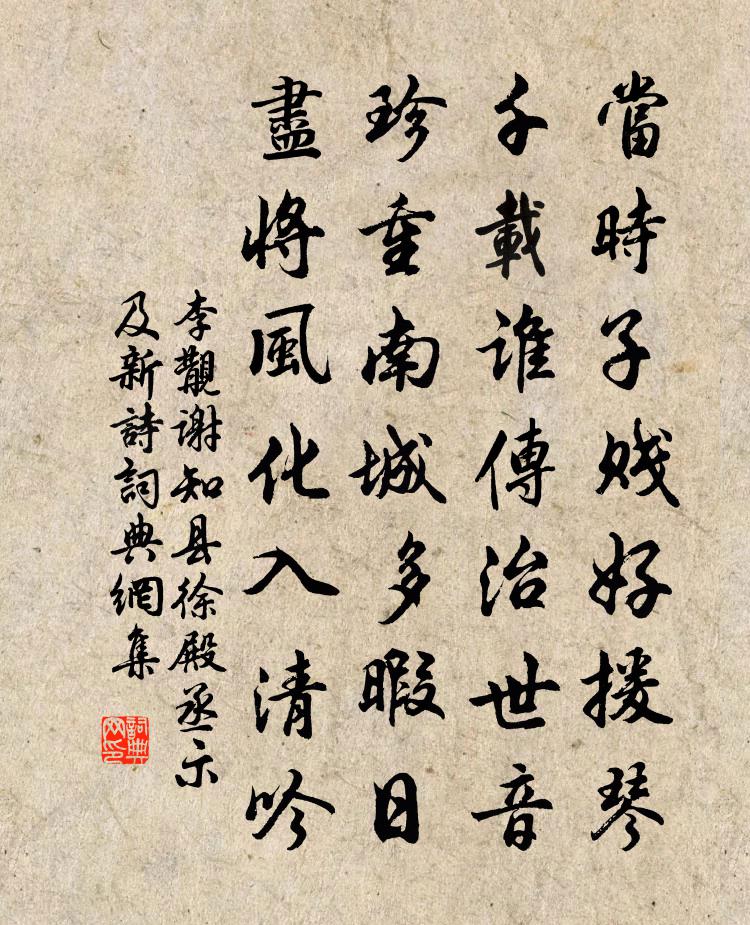 當時子賤好援琴
千載誰傳治世音
珍重南城多暇日
盡將風化入清吟
李覯謝知县徐殿丞示
及新詩詞典網集
詞典
网印